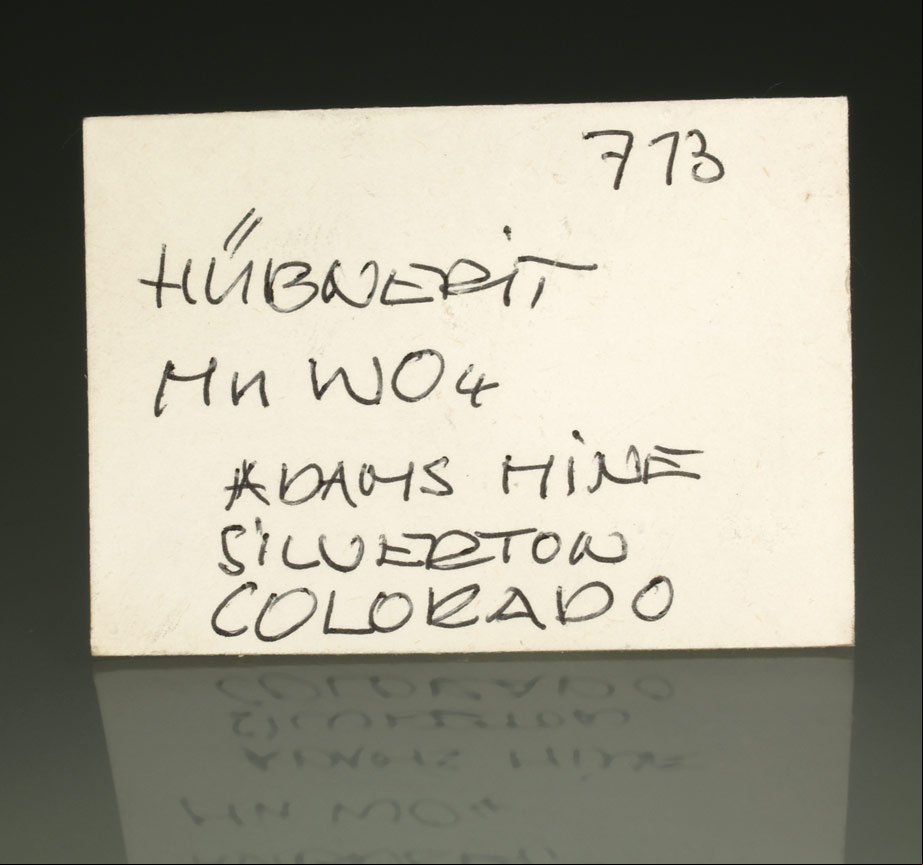 713
HÜBNERIT
Mn WO4
ADAMS MINE
SILVERTON
COLORADO